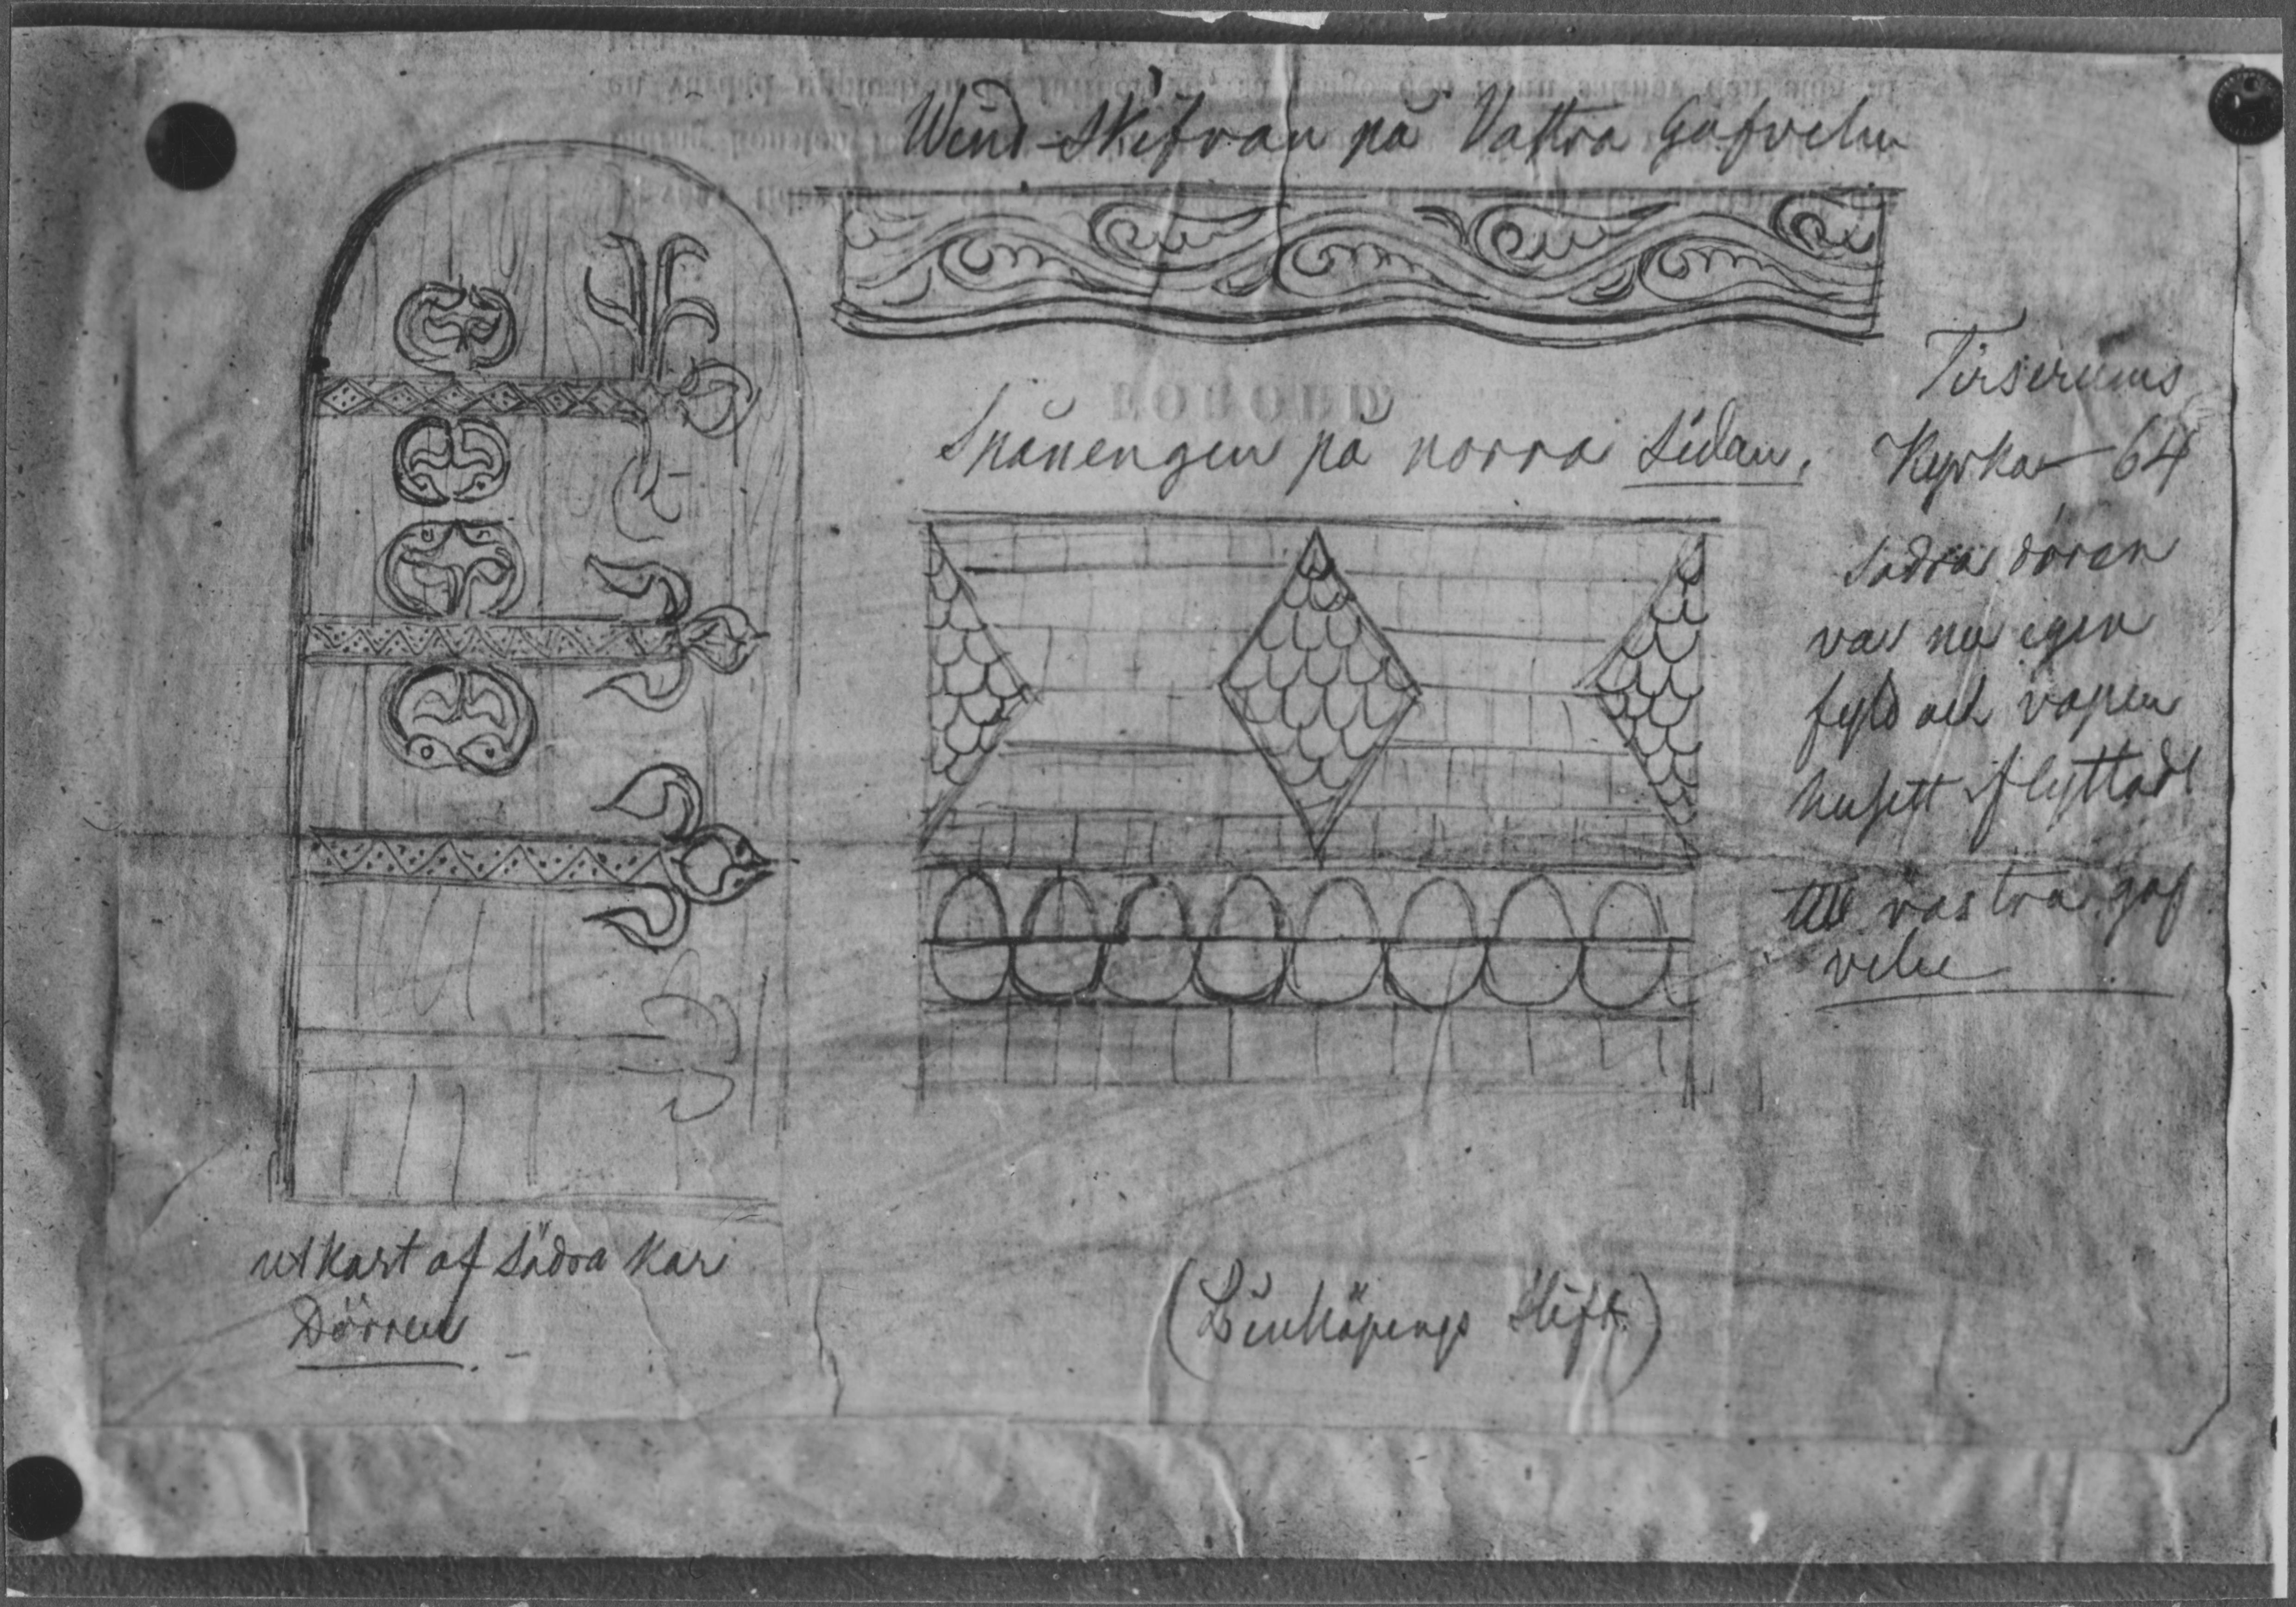 Wind-Skifvan på Vattra Gafveln
Spåningen på norra sidan.
Tirserums
Kyrka 64
södra dören
var nu igen
fyld och vapen
husett flyttadt
till västra gaf
veln
utkast af södra kor
Dörren
(Linköpings Stift)